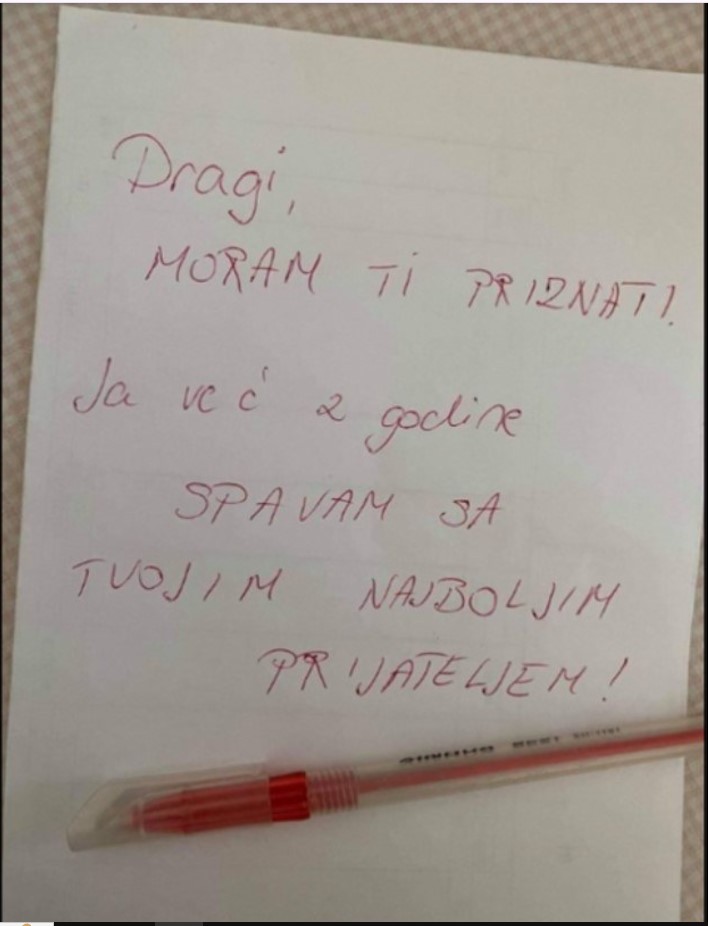 Dragi,
MORAM TI PRIZNATI.
Ja već 2 godine
SPAVAM SA
TVOJIM NAJBOLJIM
PRIJATELJEM!